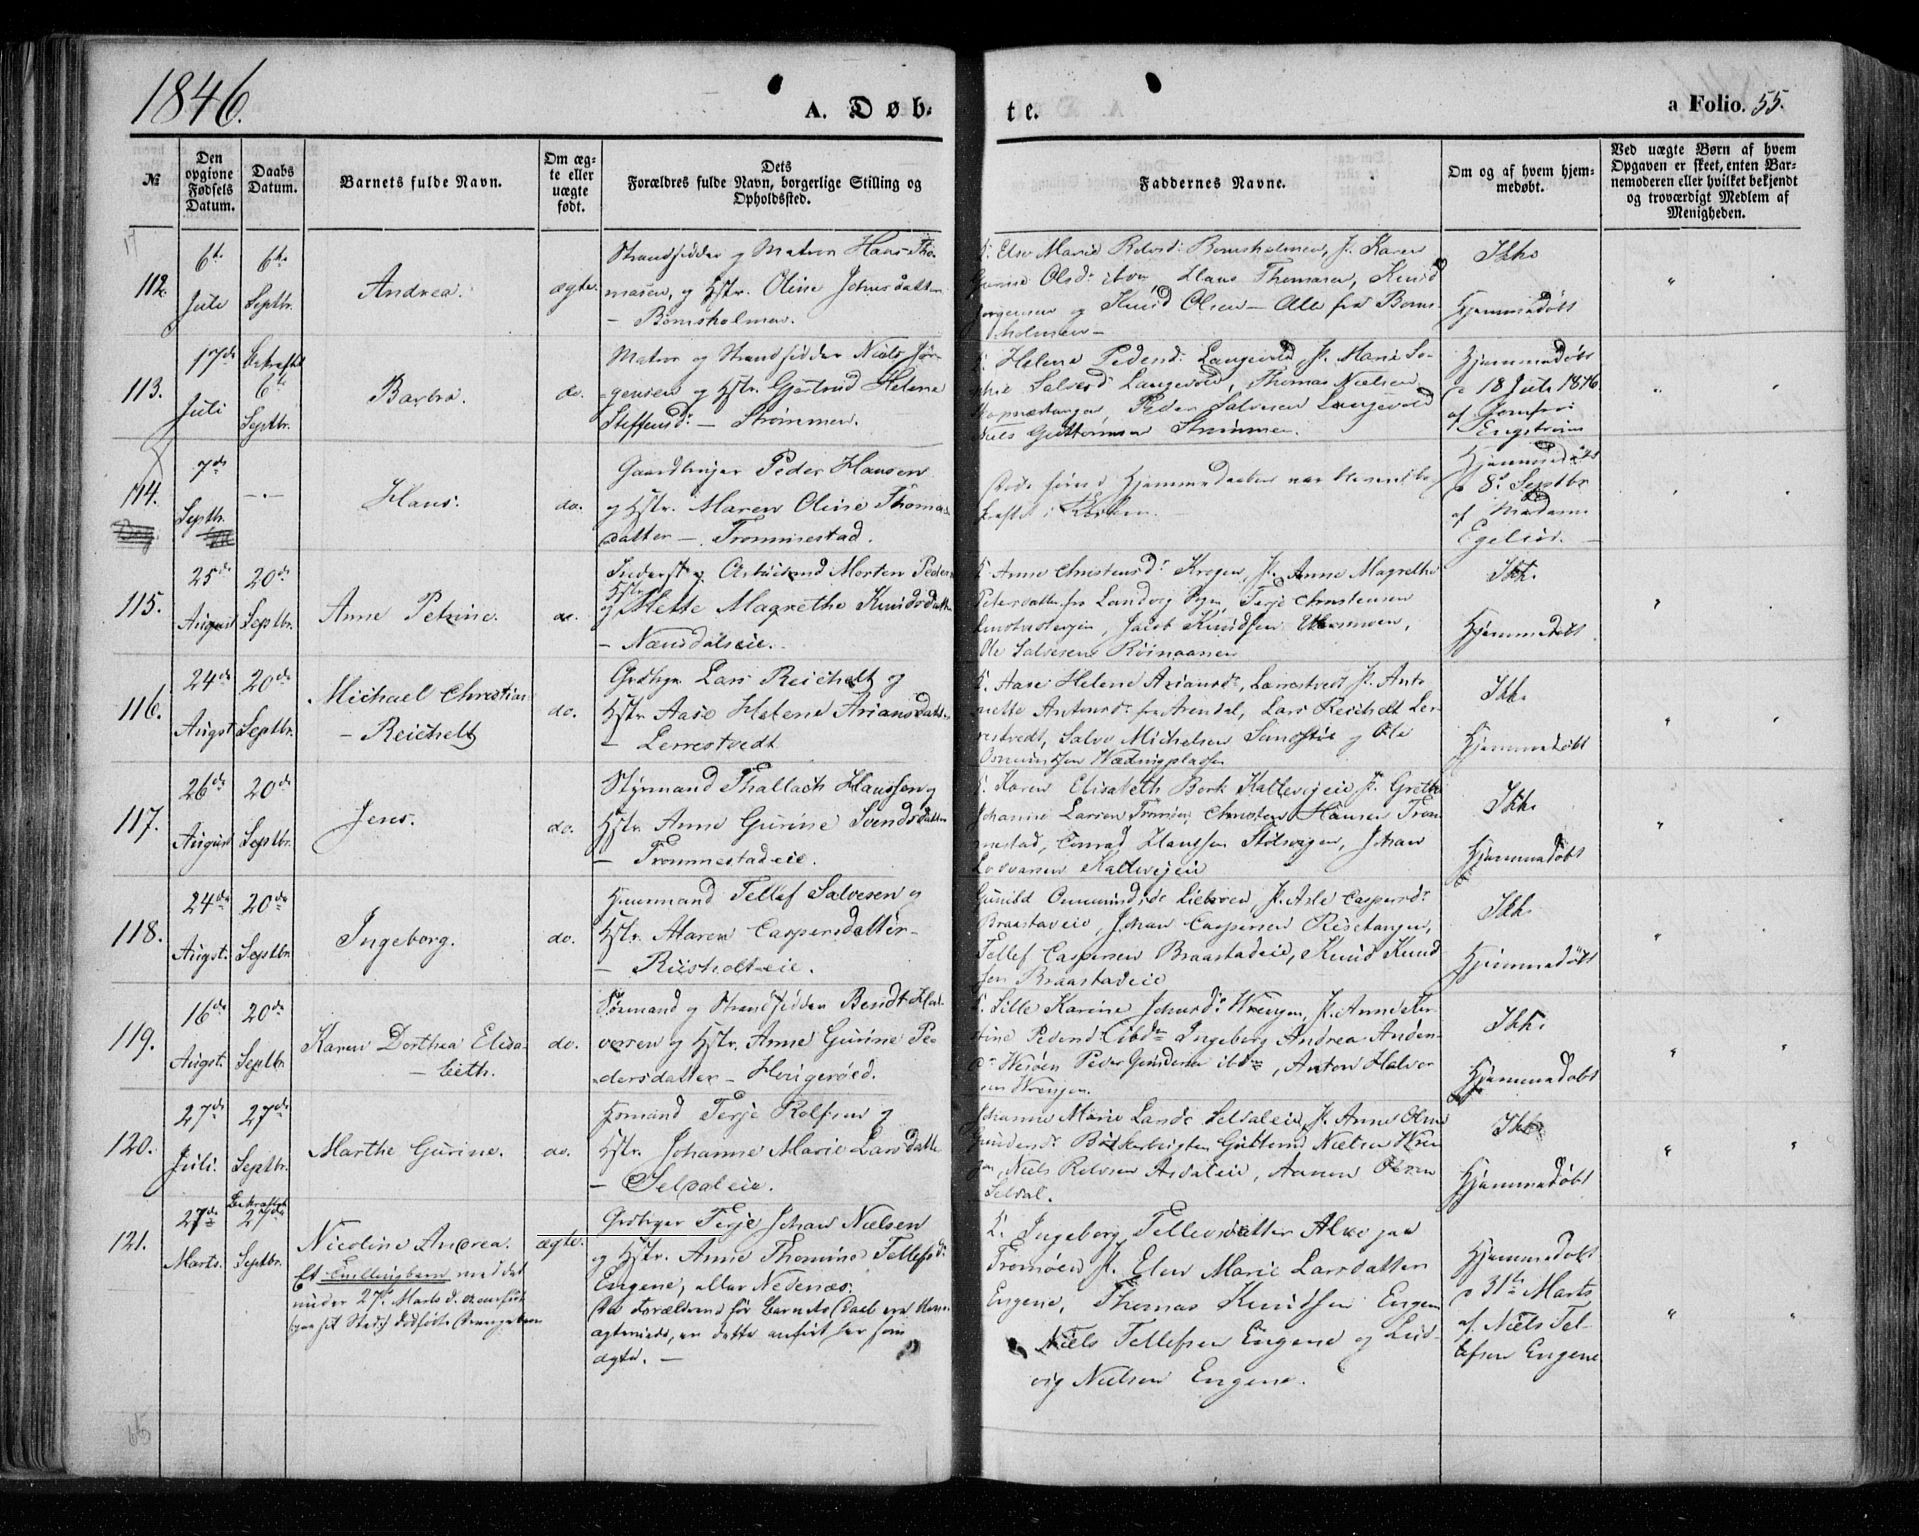 1846.
A. Døb-
te.
a Folio. 55.
№
Den opgivne Fødsels Datum.
Daabs Datum.
Barnets fulde Navn.
Om ægte eller uægte født.
Dets Forældres fulde Navn, borgerlige Stilling og Opholdssted.
Faddernes Navne.
Om og af hvem hjemmedøbt.
Ved uægte Børn af hvem Opgaven er skeet, enten Barnemoderen eller hvilket bekjendt og troværdigt Medlem af Menigheden.
112.
6te Juli
6te Septbr.
Andrea.
ægte.
Strandsidder og Matros Hans Tho-
masen, og Hstr. Oline Jensdatter
– Bomsholmen.
Else Marie Bomsholmen, J. Karen
Gurine Olsdr. Claus Thomasen, Knud
Jørgensen og Knud Olsen – Alle fra Boms-
holmen –
Ikke
Hjemmedøbt
113.
17de Juli
Bekræftet 6te Septbr.
Barbra.
do.
Matros og Strandsidder Niels Jør-
gensen og Hstr. Gjertrud Helene
Steffensdr. – Strømmen.
Helene Pedersd. Langevold, J. Marie So-
phie Salvesd. Langevold, Thomas Nielsen
Peder Salvesen Langevold
Niels Guttormsen Strømmen.
Hjemmedøbt
18 Juli 1846
af Jomfru
Engstrøm
114.
7de Septbr.
– . –
Hans.
do.
Gaardbruger Peder Hansen
og Hstr. Maren Oline Thomas-
datter – Trommestad.
Døde førend Hjemmedaaben var bleven be-
kræftet i Kirken. –
Hjemmedøbt
8de Septbr
af Madame
Egelie. –
115.
25de August
20de Septbr.
Anne Petrine.
do.
og Arbeidsmd Morten Peders
og Hstr. Mette Magrethe Knudsdatter
– Næsdalseie.
Anne Christensdr. Krogen, J. Anne Magrethe
Petersdatter fra Landvig Terje Christensen
Jacob Knudsen
Ole Salvesen
Ikke
Hjemmedøbt
116.
24de Augst
20de Septbr.
Michael Christian
– Reichelt
do.
Grdbgr. Lars Reichelt og
Hstr. Aase Helene Ariansdatter
– Lerrestvedt
Aase Helene Ariansdr. Lærrestvedt J. Anto-
nette Antonsdr. fra Arendal, Lars Reichelt Ler-
restvedt, Salve Michelsen og Ole
Osmundsen
Ikke
Hjemmedøbt
117.
26de August
20de Septbr.
Jens.
do.
Styrmand Thallach Hanssen og
Hstr. Anne Gurine Svendsdatter
– Trommestadeie.
Karen Elisabeth Bork Kallevigeie J. Grethe
Johanne Larsen Tromøe, Christen Hansen Trom-
mestad, Conrad Hanssen Johan
Kallevigeie
Ikke
Hjemmedøbt
118.
24de Augst.
20de Septbr.
Ingeborg.
do.
Huusmand Tellef Salvesen og
Hstr. Maren Caspersdatter –
– Riisholteie.
Gunild J. Asle Caspersdr.
Braastadeie, Johan Caspersen
Tellef Caspersen Braastadeie, Knud Knud-
sen Braastadeie
Ikke
Hjemmedøbt
119.
16de Augst.
20de Septbr.
Karen Dorthea Elisa-
– beth.
do.
Sømand og Strandsidder Bendt Hal-
vorsen og Hstr. Anne Gurine Pe-
dersdatter – Hougerøed.
Sille Karine Wrengen, J. Anne Kir-
stine Ingeborg Andrea
Peder Gundersen ibdm, Anton Halvor-
sen Wrengen.
Ikke.
Hjemmedøbt
120.
27de Juli.
27de Septbr.
Marthe Gurine.
do.
Terje Rolfsen og
Hstr. Johanne Marie Larsdatter
– Selvaleie.
Johanne Marie Larsd. Selvaleie, J. Anne Oline
Gundersdr. Guttorm Nielsen
Niels Rolvsen Asdaleie, Olsen
Selvdal.
Ikke
Hjemmedøbt
121.
27de Marts.
Bekræftet 27de Septbr.
Nicoline Andrea.
Et Tvillingbarn med det
under 27de Marts d.
paa sit Sted dødfødte Drengebarn
ægte.
Grdbruger Terje Johan Nielsen
og Hstr. Anne Thomine Tellefsdr.
Engene, eller Nedenæs.
(Da Forældrene før Barnets Daab ere
ægteviede, er dette anført her som
ægte. –
Ingeborg Tellevsdatter Alve paa
Tromøen J. Elen Marie Larsdatter
Engene, Thomas Knudsen Engene
Niels Tellefsen Engene og Lud-
vig Nielsen Engene.
Hjemmedøbt
31te Marts
af Niels Tel-
lefsen Engene